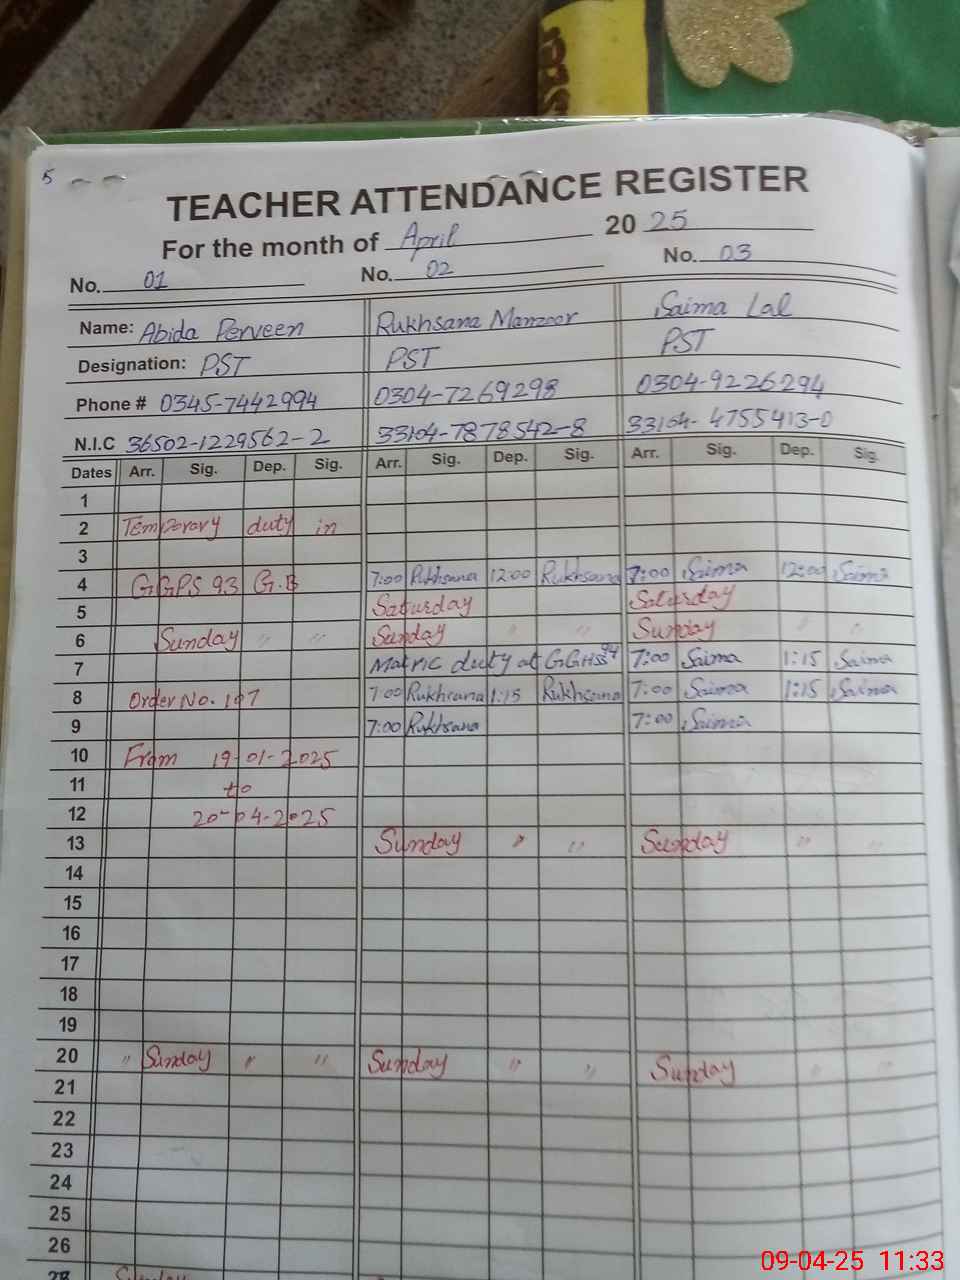 5
TEACHER ATTENDANCE REGISTER
For the month of April 2025
No. 01 No. 02 No. 03
Name: Abida Perveen Rukhsana Manzoor Saima Lal
Designation: PST PST PST
Phone # 0345-7442994 0304-7269298 0304-9226294
N.I.C 36502-1229562-2 33104-7878542-8 33104-4755413-0
Dates Arr. Sig. Dep. Sig. Arr. Sig. Dep. Sig. Arr. Sig. Dep. Sig.
1
2 Temporary duty in
3
4 GGPS 93 G.B 7:00 Rukhsana 12:00 Rukhsana 7:00 Saima 12:00 Saima
5 Saturday Saturday
6 Sunday " " Sunday " " Sunday " "
7 Matric duty at GGHSS 7:00 Saima 1:15 Saima
8 Order No. 107 7:00 Rukhsana 1:15 Rukhsana 7:00 Saima 1:15 Saima
9 7:00 Rukhsana 7:00 Saima
10 From 19-01-2025
11 to
12 20-04-2025
13 Sunday " " Sunday " "
14
15
16
17
18
19
20 " Sunday " " Sunday " " Sunday " "
21
22
23
24
25
26
Sunday
09-04-25 11:33